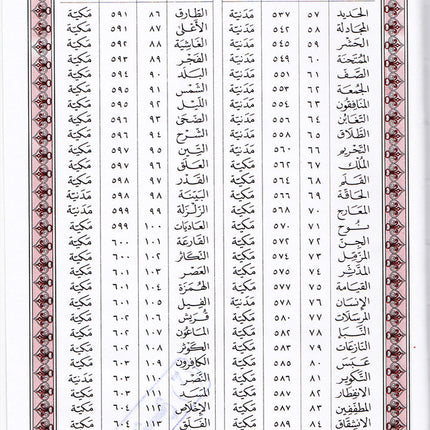 الحديد ٥٧ ٥٣٧ مَدَنيّة الطّارق ٨٦ ٥٩١ مَكيّة
المجَادلة ٥٨ ٥٤٢ مَدَنيّة الأعْلى ٨٧ ٥٩١ مَكيّة
الحَشْر ٥٩ ٥٤٥ مَدَنيّة الغَاشِيَة ٨٨ ٥٩٢ مَكيّة
المُمتَحنَة ٦٠ ٥٤٩ مَدَنيّة الفَجْر ٨٩ ٥٩٣ مَكيّة
الصَّف ٦١ ٥٥١ مَدَنيّة البَلَد ٩٠ ٥٩٤ مَكيّة
الجُمعَة ٦٢ ٥٥٣ مَدَنيّة الشّمْس ٩١ ٥٩٥ مَكيّة
المنَافِقون ٦٣ ٥٥٤ مَدَنيّة الليْل ٩٢ ٥٩٥ مَكيّة
التغَابُن ٦٤ ٥٥٦ مَدَنيّة الضّحَى ٩٣ ٥٩٦ مَكيّة
الطّلَاق ٦٥ ٥٥٨ مَدَنيّة الشّرْح ٩٤ ٥٩٦ مَكيّة
التحْريم ٦٦ ٥٦٠ مَدَنيّة التِّين ٩٥ ٥٩٧ مَكيّة
المُلْك ٦٧ ٥٦٢ مَكيّة العَلَق ٩٦ ٥٩٧ مَكيّة
القَلَم ٦٨ ٥٦٤ مَكيّة القَدْر ٩٧ ٥٩٨ مَكيّة
الحَاقّة ٦٩ ٥٦٦ مَكيّة البَيّنَة ٩٨ ٥٩٨ مَدَنيّة
المعَارج ٧٠ ٥٦٨ مَكيّة الزلزَلة ٩٩ ٥٩٩ مَدَنيّة
نُوح ٧١ ٥٧٠ مَكيّة العَاديَات ١٠٠ ٥٩٩ مَكيّة
الجِنّ ٧٢ ٥٧٢ مَكيّة القَارعَة ١٠١ ٦٠٠ مَكيّة
المزّمّل ٧٣ ٥٧٤ مَكيّة التكَاثر ١٠٢ ٦٠٠ مَكيّة
المدَّثِّر ٧٤ ٥٧٥ مَكيّة العَصْر ١٠٣ ٦٠١ مَكيّة
القِيَامَة ٧٥ ٥٧٧ مَكيّة الهُمَزة ١٠٤ ٦٠١ مَكيّة
الإنسَان ٧٦ ٥٧٨ مَدَنيّة الفِيل ١٠٥ ٦٠١ مَكيّة
المرسَلات ٧٧ ٥٨٠ مَكيّة قُرَيش ١٠٦ ٦٠٢ مَكيّة
النّبَأ ٧٨ ٥٨٢ مَكيّة المَاعُون ١٠٧ ٦٠٢ مَكيّة
النّازعَات ٧٩ ٥٨٣ مَكيّة الكَوثَر ١٠٨ ٦٠٢ مَكيّة
عَبَسَ ٨٠ ٥٨٥ مَكيّة الكافِرون ١٠٩ ٦٠٣ مَكيّة
التّكوير ٨١ ٥٨٦ مَكيّة النّصْر ١١٠ ٦٠٣ مَدَنيّة
الانفِطار ٨٢ ٥٨٧ مَكيّة المَسَد ١١١ ٦٠٣ مَكيّة
المطفّفِين ٨٣ ٥٨٧ مَكيّة الإخْلاص ١١٢ ٦٠٤ مَكيّة
الانشِقاق ٨٤ ٥٨٩ مَكيّة الفَلَق ١١٣ ٦٠٤ مَكيّة